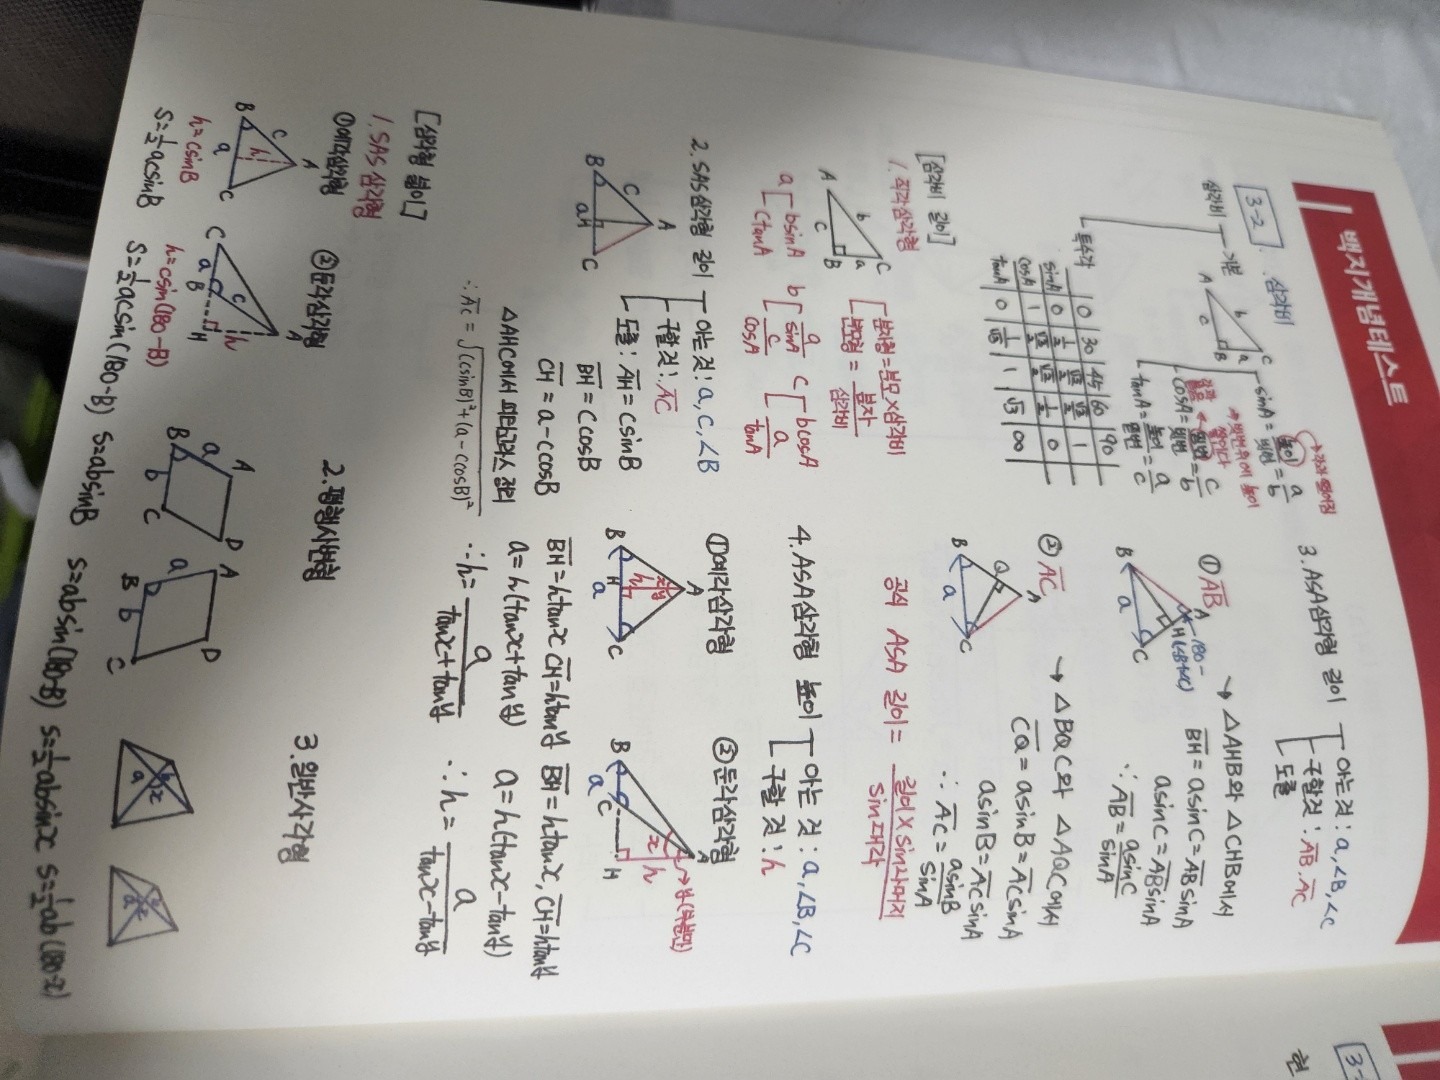 백지개념테스트
3-2. 삼각비
삼각비
기본
A
b
C
a
B
c
sinA = 높이/빗변 = a/b
cosA = 밑변/빗변 = c/b
tanA = 높이/밑변 = a/c
특수각 0 30 45 60 90
sinA 0 1/2 √2/2 √3/2 1
cosA 1 √3/2 √2/2 1/2 0
tanA 0 1/√3 1 √3 ∞
[삼각비 길이]
1. 직각삼각형
A
b
C
a
B
c
분자형=분모×삼각비
분모형 = 분자/삼각비
a
bsinA
ctanA
b
a/sinA
c/cosA
c
bcosA
a/tanA
2. SAS삼각형 길이
아는것: a, c, ∠B
구할것: AC
도출: AH = csinB
BH = ccosB
CH = a-ccosB
A
c
B
a
H
C
△AHC에서 피타고라스 정리
∴ AC = √(csinB)²+(a-ccosB)²
3. ASA삼각형 길이
아는것: a, ∠B, ∠C
구할것: AB, AC
도출
① AB
A
180-(∠B+∠C)
H
B
a
C
→ △AHB와 △CHB에서
BH = asinC = AB sinA
asinC = AB sinA
∴ AB = asinC/sinA
② AC
A
Q
B
a
C
→ △BQC와 △AQC에서
CQ = asinB = AC sinA
asinB = AC sinA
∴ AC = asinB/sinA
공식 ASA 길이 = 길이×sin나머지/sin대각
4. ASA삼각형 높이
아는 것: a, ∠B, ∠C
구할 것: h
①예각삼각형
A
x y
h
B
H
a
C
BH = htanx CH = htany
a = h(tanx+tany)
∴ h = a/tanx+tany
②둔각삼각형
A
x
h
B
a
C
H
BH = htanx, CH = htany
a = h(tanx-tany)
∴ h = a/tanx-tany
[삼각형 넓이]
1. SAS삼각형
①예각삼각형
A
c
h
B
a
C
h=csinB
S=1/2acsinB
②둔각삼각형
A
c
h
C
a
B
H
h=csin(180-B)
S=1/2acsin(180-B)
2. 평행사변형
A
a
D
B
b
C
S=absinB
A
a
D
B
b
C
S=absin(180-B)
3. 일반사각형
a
b
x
S=1/2absinx
S=1/2ab(180-x)
현